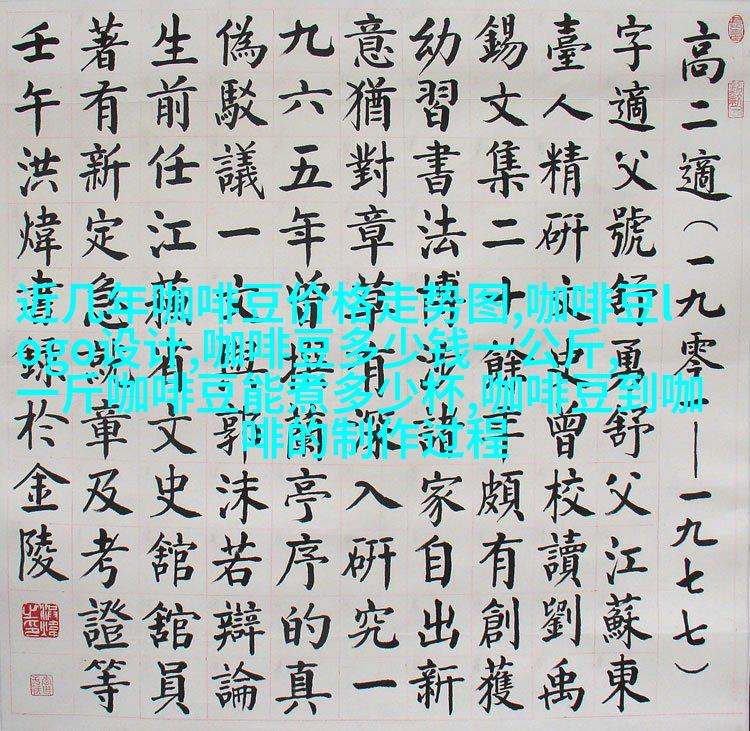 高二適（一九零——一九七七）
字適父號舒勇舒父江蘇東
臺人精研文史曾校讀劉禹
錫文集二十餘年頗有創獲
幼習書法博涉諸家自出新
意猶對章草有深入研究一
九六五年曾撰蘭亭序的真
偽駁議一文與郭沫若辯論
生前任江蘇省文史舘舘員
著有新定急就章及考證等
壬午洪煒書錄於金陵
近几年咖啡豆价格走势图,咖啡豆l
ogo设计,咖啡豆多少钱一公斤,
一斤咖啡豆能煮多少杯,咖啡豆到咖
啡的制作过程